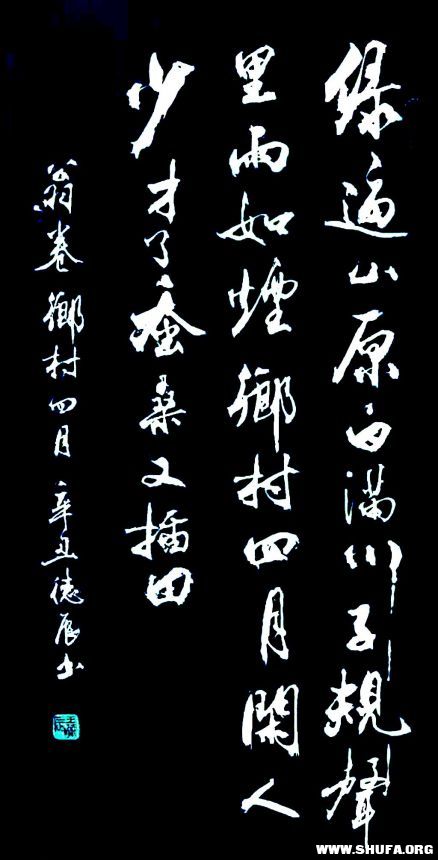 绿遍山原白满川子规声
里雨如煙鄉村四月閑人
少才了蚕桑又插田
翁卷鄉村四月辛丑德辰书
WWW.SHUFA.ORG